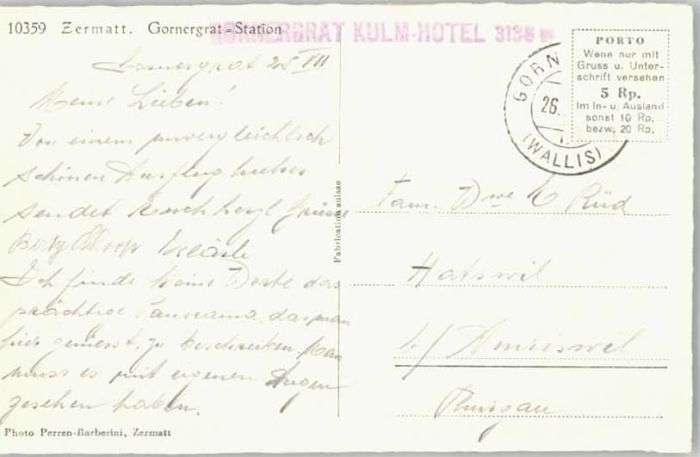 10359 Zermatt. Gornergrat-Station
GORNERGRAT KULM-HOTEL 3136 m
PORTO
Wenn nur mit
Gruss u. Unter-
schrift versehen
5 Rp.
Im In- u. Ausland
sonst 10 Rp.
bezw. 20 Rp.
GORN
26.
(WALLIS)
Gornergrat 25 VII
Meine Lieben!
Von einem unvergleichlich
schönen Ausflug
sendet Euch herzl Grüsse
Ich finde keine Worte das
prächtige Panorama, das man
hier geniesst, zu beschreiben. Man
muss es mit eigenen Augen
gesehen haben.
Fabrication suisse
Fam. Dwe E Rüd
Hatswil
b/ Amriswil
Thurgau
Photo Perren-Barberini, Zermatt